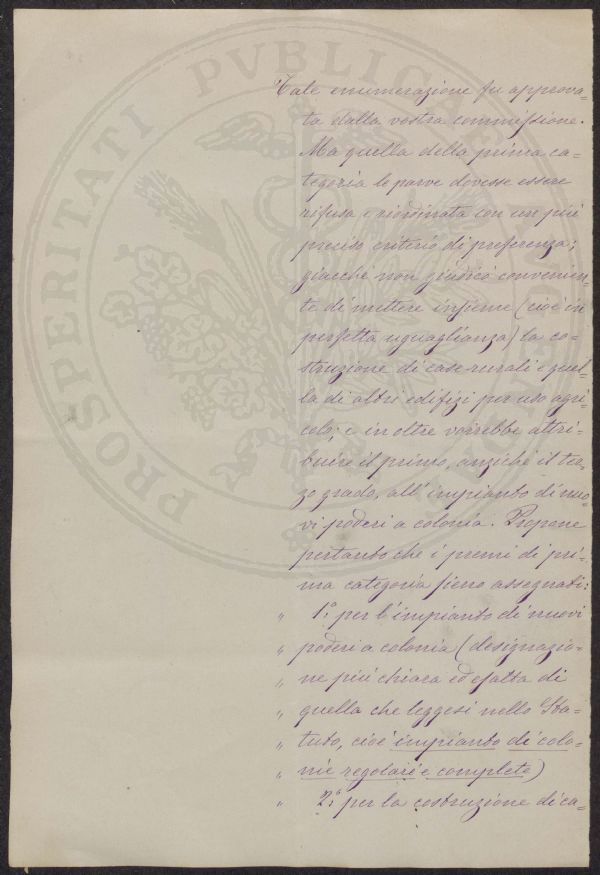 PROSPERITATI PVBLICAE
Tale enumerazione fu approva=
ta dalla vostra commissione.
Ma quella della prima ca=
tegoria le parve dovesse essere
rifusa e riordinata con un più
preciso criterio di preferenza;
giacchè non giudicò convenien=
te di mettere insieme (cioè in
perfetta uguaglianza) la co=
struzione di case rurali e quel=
la di altri edifizi per uso agri=
colo; e inoltre vorrebbe attri=
buire il primo, anzichè il ter=
zo grado, all'impianto di nuo=
vi poderi a colonia. Propone
pertanto che i premi di pri=
ma categoria sieno assegnati:
" 1.° per l'impianto di nuovi
" poderi a colonia (designazio=
" ne più chiara ed esatta di
" quella che leggesi nello Sta=
" tuto, cioè impianto di colo=
" nie regolari e complete)
" 2.° per la costruzione di ca=